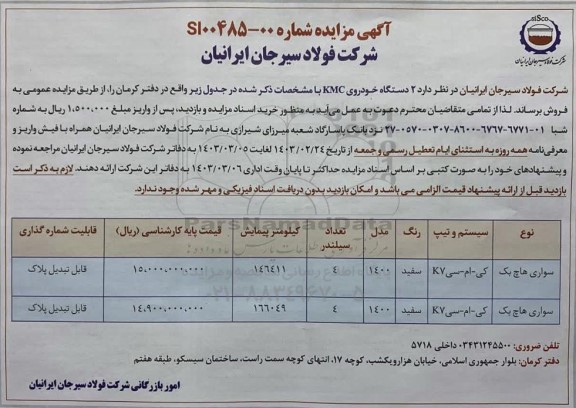 SISCo
شرکت فولاد سیرجان ایرانیان
آگهی مزایده شماره SI00485-00
شرکت فولاد سیرجان ایرانیان
شرکت فولاد سیرجان ایرانیان در نظر دارد ۲ دستگاه خودروی KMC با مشخصات ذکر شده در جدول زیر واقع در دفتر کرمان را، از طریق مزایده عمومی به
فروش برساند. لذا از تمامی متقاضیان محترم دعوت به عمل می‌آید به منظور خرید اسناد مزایده و بازدید، پس از واریز مبلغ ۱,۵۰۰,۰۰۰ ریال به شماره
شبا ۰۱-۶۷۷۱-۶۷۶۷-۸۶۰۰-۰۳۰۷-۰۵۷۰-۲۷ نزد بانک پاسارگاد شعبه میرزای شیرازی به نام شرکت فولاد سیرجان ایرانیان همراه با فیش واریز و
معرفی‌نامه همه روزه به استثنای ایام تعطیل رسمی و جمعه از تاریخ ۱۴۰۳/۰۲/۲۴ لغایت ۱۴۰۳/۰۳/۰۵ به دفاتر شرکت فولاد سیرجان ایرانیان مراجعه نموده
و پیشنهادهای خود را به صورت کتبی بر اساس اسناد مزایده حداکثر تا پایان وقت اداری ۱۴۰۳/۰۳/۰۶ به دفاتر این شرکت ارائه دهند. لازم به ذکر است
بازدید قبل از ارائه پیشنهاد قیمت الزامی می باشد و امکان بازدید بدون دریافت اسناد فیزیکی و مهر شده وجود ندارد.
نوع سیستم و تیپ رنگ مدل تعداد سیلندر کیلومتر پیمایش قیمت پایه کارشناسی (ریال) قابلیت شماره گذاری
سواری هاچ بک کی-ام-سی K7 سفید ۱۴۰۰ ۴ ۱۴۶۴۱۱ ۱۵.۰۰۰.۰۰۰.۰۰۰ قابل تبدیل پلاک
سواری هاچ بک کی-ام-سی K7 سفید ۱۴۰۰ ۴ ۱۶۶۰۴۹ ۱۴.۹۰۰.۰۰۰.۰۰۰ قابل تبدیل پلاک
تلفن ضروری: ۰۳۴۳۱۲۴۵۵۰۰ داخلی ۵۷۱۸
دفتر کرمان: بلوار جمهوری اسلامی، خیابان هزارویکشب، کوچه ۱۷، انتهای کوچه سمت راست، ساختمان سیسکو، طبقه هفتم
امور بازرگانی شرکت فولاد سیرجان ایرانیان
ParsNamadData